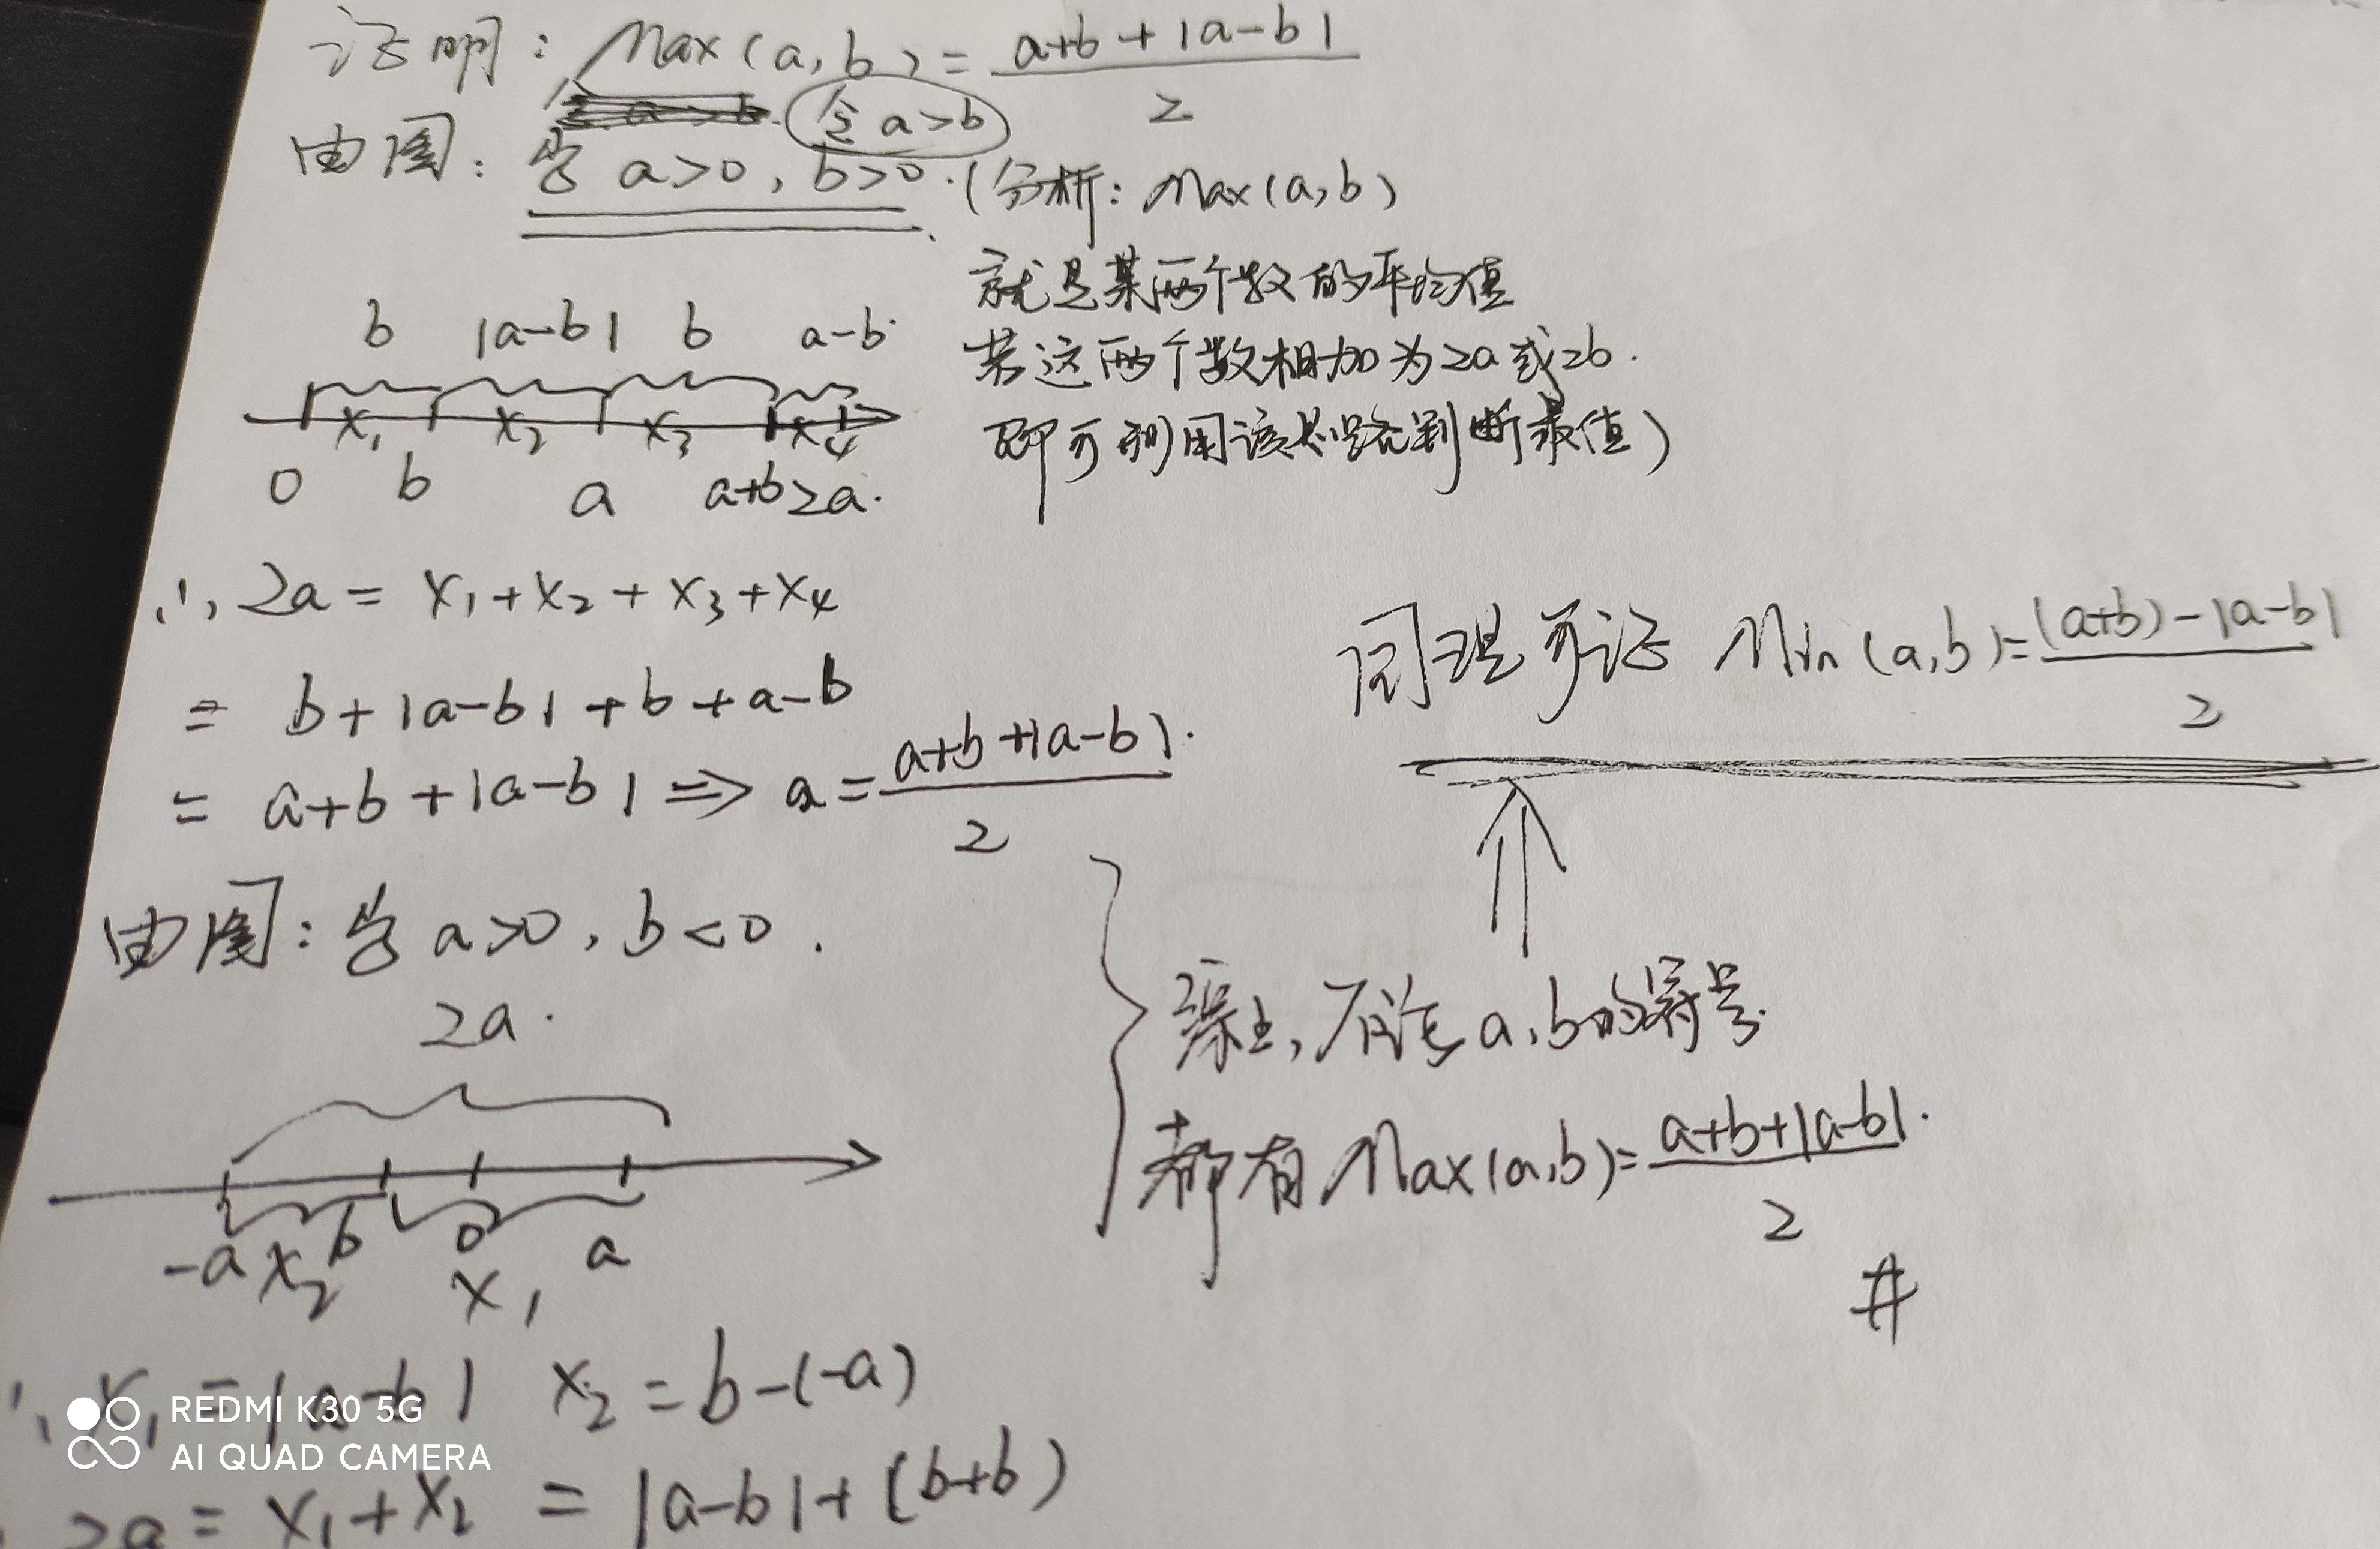 证明：Max(a,b)=(a+b+|a-b|)/2
令a>b
由图：当a>0，b>0.(分析：Max(a,b)
就是某两个数的平均值
若这两个数相加为2a或2b.
即可利用该思路判断最值)
b |a-b| b a-b
x₁ x₂ x₃ x₄
0 b a a+b 2a.
∴2a=x₁+x₂+x₃+x₄
=b+|a-b|+b+a-b
=a+b+|a-b|⇒a=(a+b+|a-b|)/2.
由图：当a>0，b<0.
2a.
-a b 0 a
x₂ x₁
∴x₁=|a-b| x₂=b-(-a)
2a=x₁+x₂=|a-b|+(b+b)
综上，不论a,b的符号.
都有Max(a,b)=(a+b+|a-b|)/2.
#
同理可证 Min(a,b)=((a+b)-|a-b|)/2
REDMI K30 5G
AI QUAD CAMERA